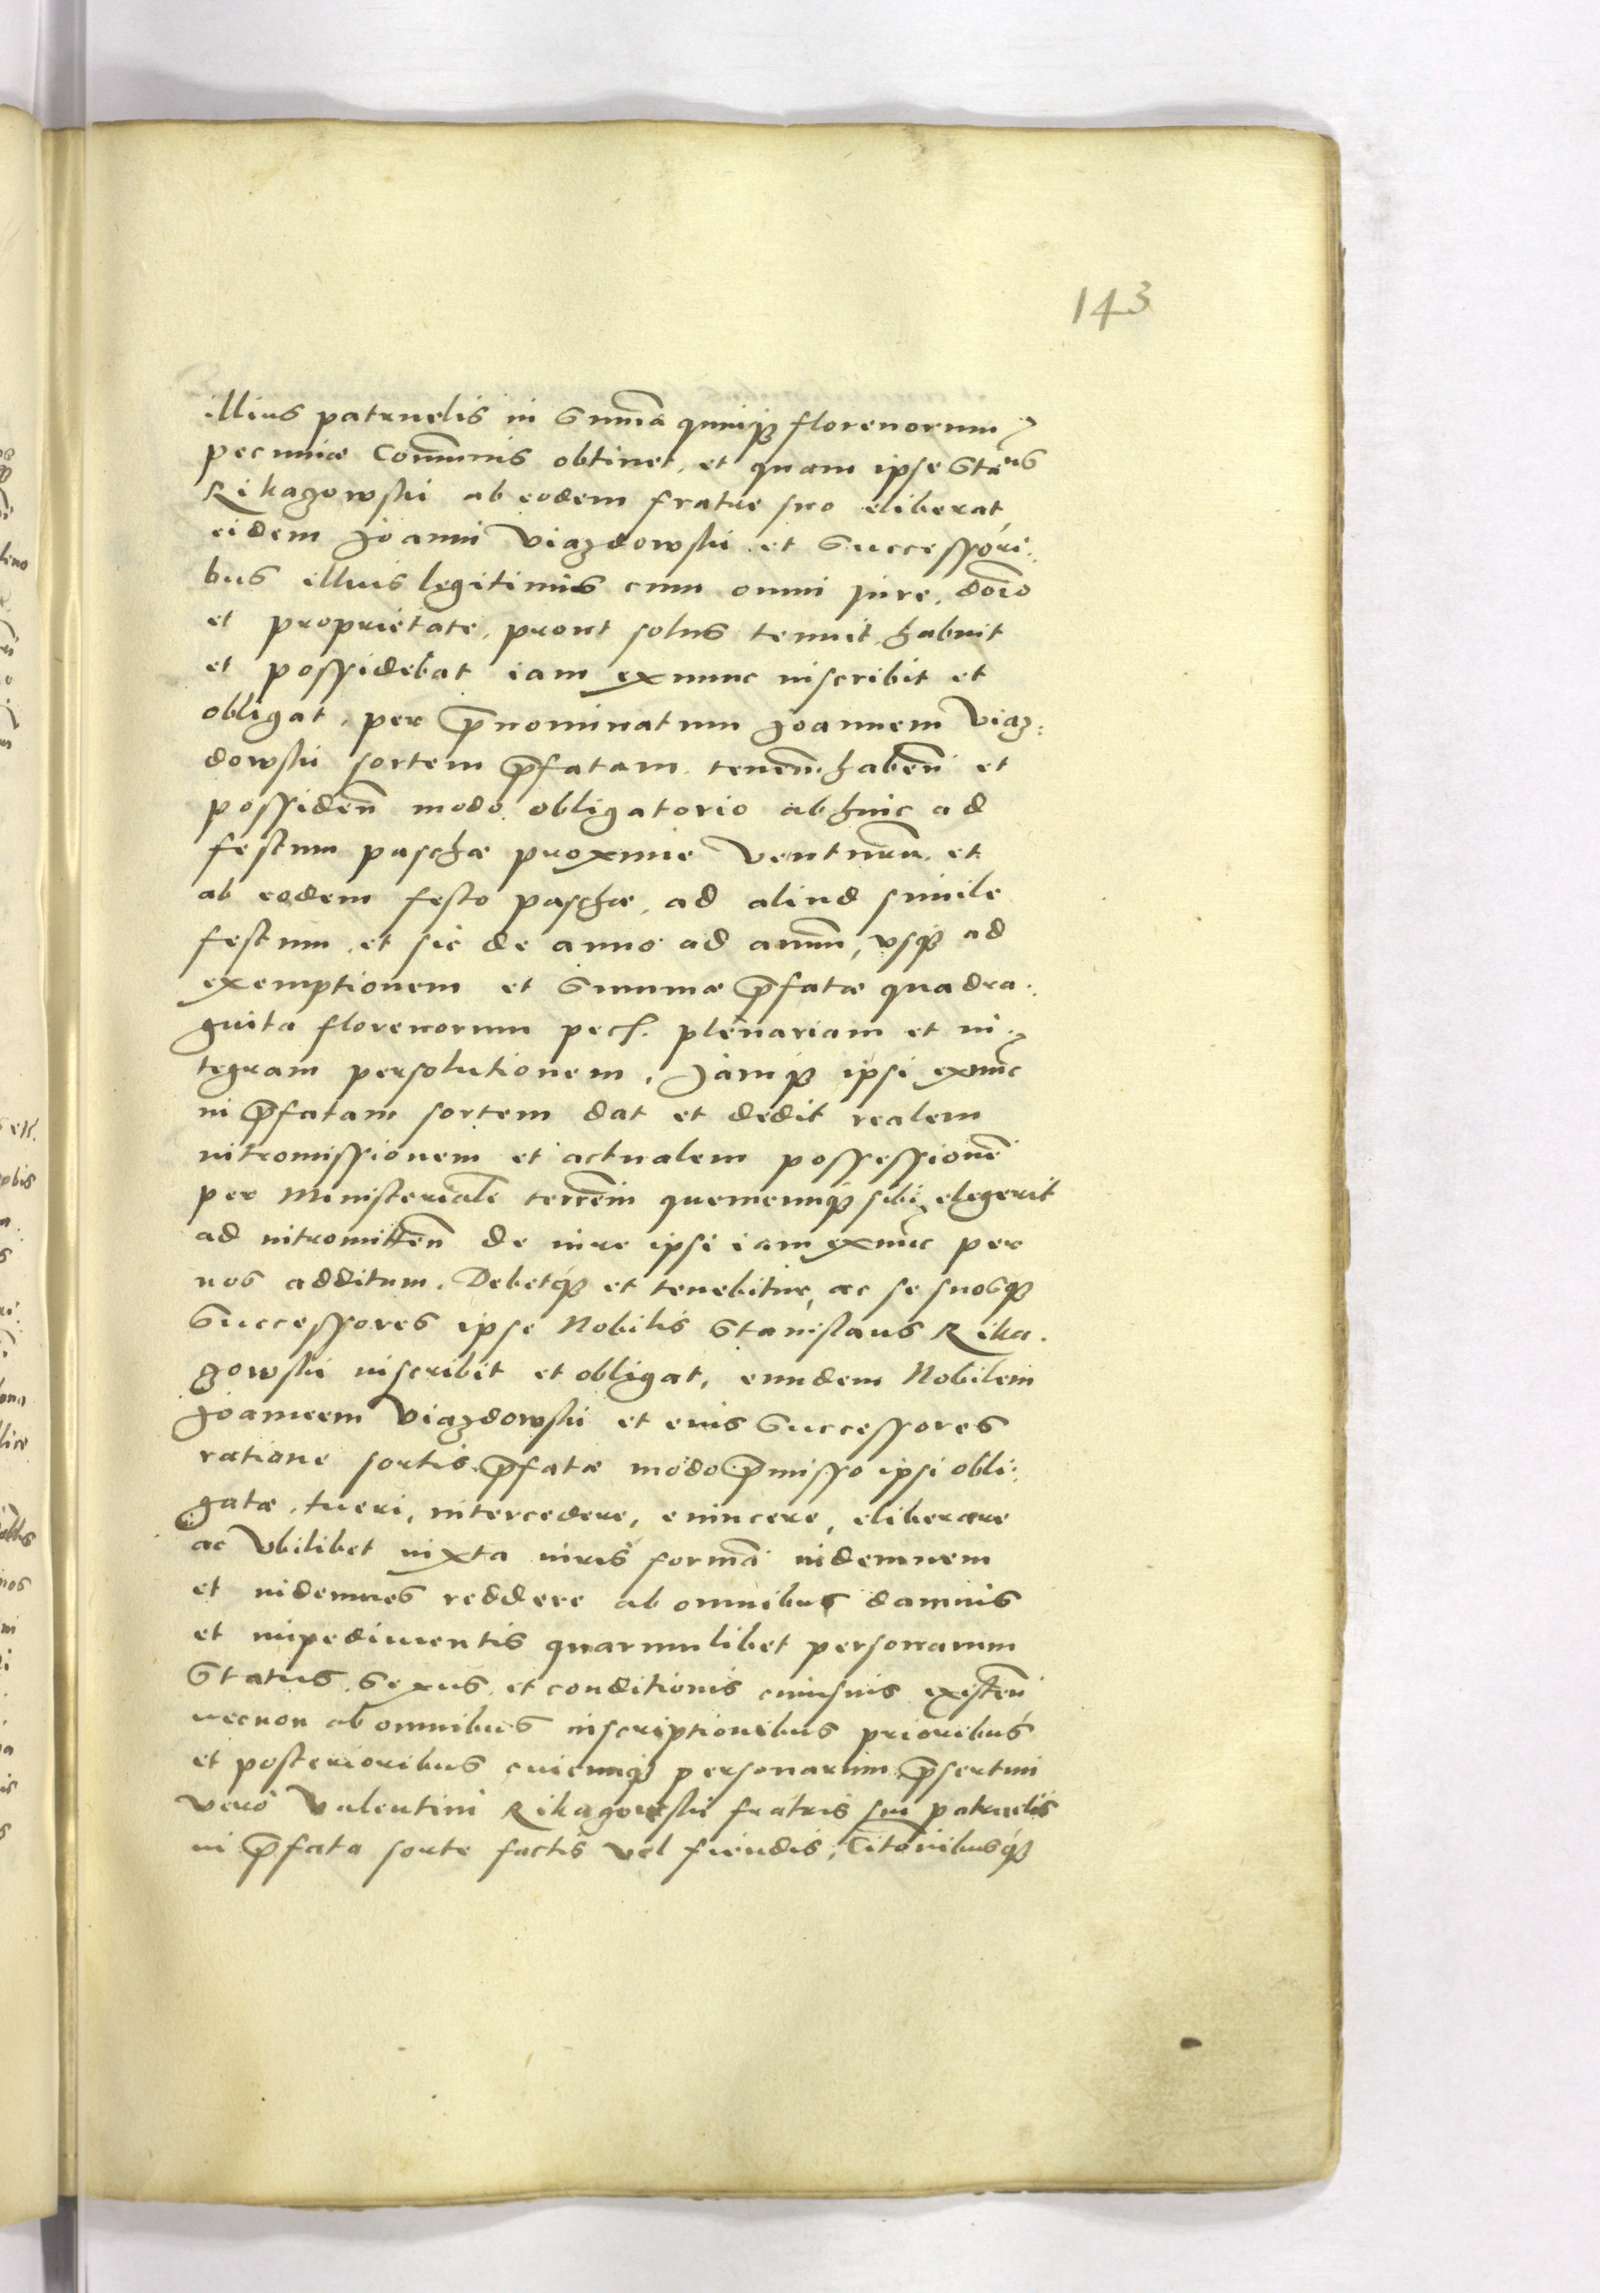 143
illius patruelis in Sum̃a quinqꝫ florenorum
pecuniæ Com̃unis obtinet, et quam ipse Stãus
Rikagowski ab eodem fratre suo eliberat,
eidem Joanni Viazdowski et Successori:
bus illius legitimis cum omni iure, dõio
et proprietate, prout solus tenuit, habuit
et possidebat iam ex nunc inscribit et
obligat, per p̃nominatum Joannem Viaz:
dowski sortem p̃fatam, teneñ. habeñ et
possideñ modo obligatorio abhinc ad
festum paschæ proxime Venturũ, et
ab eodem festo paschæ, ad aliud simile
festum, et sic de anno ad annũ, vsqꝫ ad
exemptionem et Summæ p̃fatæ quadra:
ginta florenorum pecũ. plenariam et in:
tegram persolutionem, Jamqꝫ ipsi exnũc
in p̃fatam sortem dat et dedit realem
intromissionem et actualem possessionẽ
per Ministerialẽ terrẽm quemcunqꝫ sibi elegerit
ad intromitteñ de iure ipsi iam exnũc per
nos additum. Debetqꝫ et tenebitur, ac se suosqꝫ
Successores ipse Nobilis Stanislaus Rika.
gowski inscribit et obligat, eundem Nobilem
Joannem Viazdowski et eius Successores
ratione sortis p̃fatæ modo p̃misso ipsi obli:
gatæ, tueri, intercedere, euincere, eliberare
ac Vbilibet iuxta iuris formã indemnem
et indemnes reddere ab omnibus damnis
et impedimentis quarumlibet personarum
Status, Sexus, et conditionis cuiusuis existeñ
necnon ab omnibus inscriptionibus prioribus
et posterioribus cuicunqꝫ personarum, p̃sertim
vero Valentini Rikagowski fratris sui patruelis
in p̃fata sorte factis vel fiendis, Citõnibusqꝫ